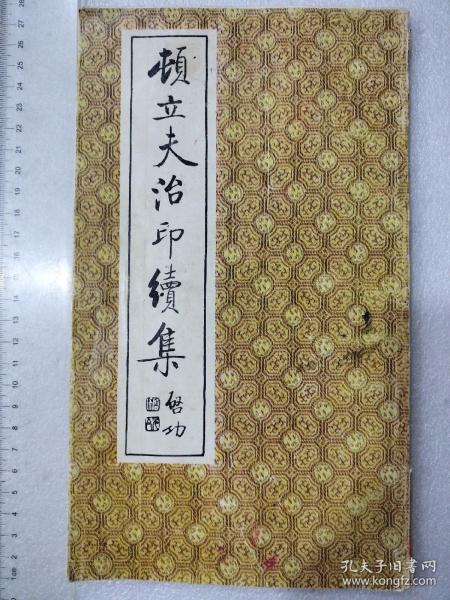 頓立夫治印續集
啓功
28
27
26
25
24
23
22
21
20
19
18
17
16
15
14
13
12
11
10
9
8
7
6
5
4
3
2
1
0
cm
孔夫子旧书网
www.kongfz.com